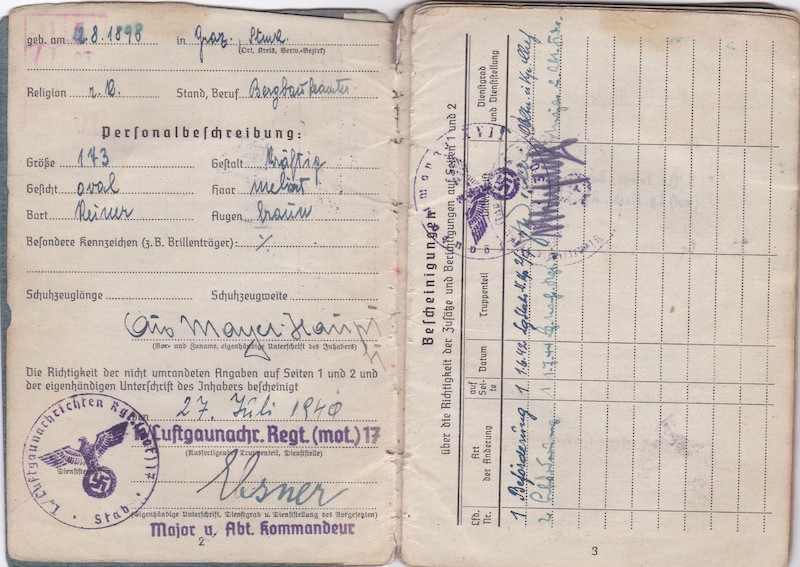 geb. am 12.8.1898 in Graz, Stmk.
(Ort, Kreis, Verw.-Bezirk)
Religion r. K. Stand, Beruf Bergbaubeamter
Personalbeschreibung:
Größe 173 Gestalt kräftig
Gesicht oval Haar meliert
Bart Keiner Augen braun
Besondere Kennzeichen (z.B. Brillenträger): /
Schuhzeuglänge Schuhzeugweite
Mayer-Haupt
(Vor- und Zuname, eigenhändige Unterschrift des Inhabers)
Die Richtigkeit der nicht umrandeten Angaben auf Seiten 1 und 2 und
der eigenhändigen Unterschrift des Inhabers bescheinigt
27. Juli 1940
Luftgaunachr. Regt. (mot.) 17
(Ausfertigender Truppenteil, Dienststelle)
Elsner
(Eigenhändige Unterschrift, Dienstgrad u. Dienststellung des Vorgesetzten)
Major u. Abt. Kommandeur
2
Luftgaunachrichten Rgt. (mot.) 17
Stab
Dienstst
Bescheinigungen
über die Richtigkeit der Zusätze und Berichtigungen auf Seiten 1 und 2
Lfd. Nr. Art der Änderung auf Seite Datum Truppenteil Dienstgrad und Dienststellung
1 Beförderung 1 1.6.42
2. 1 1.7.44
3